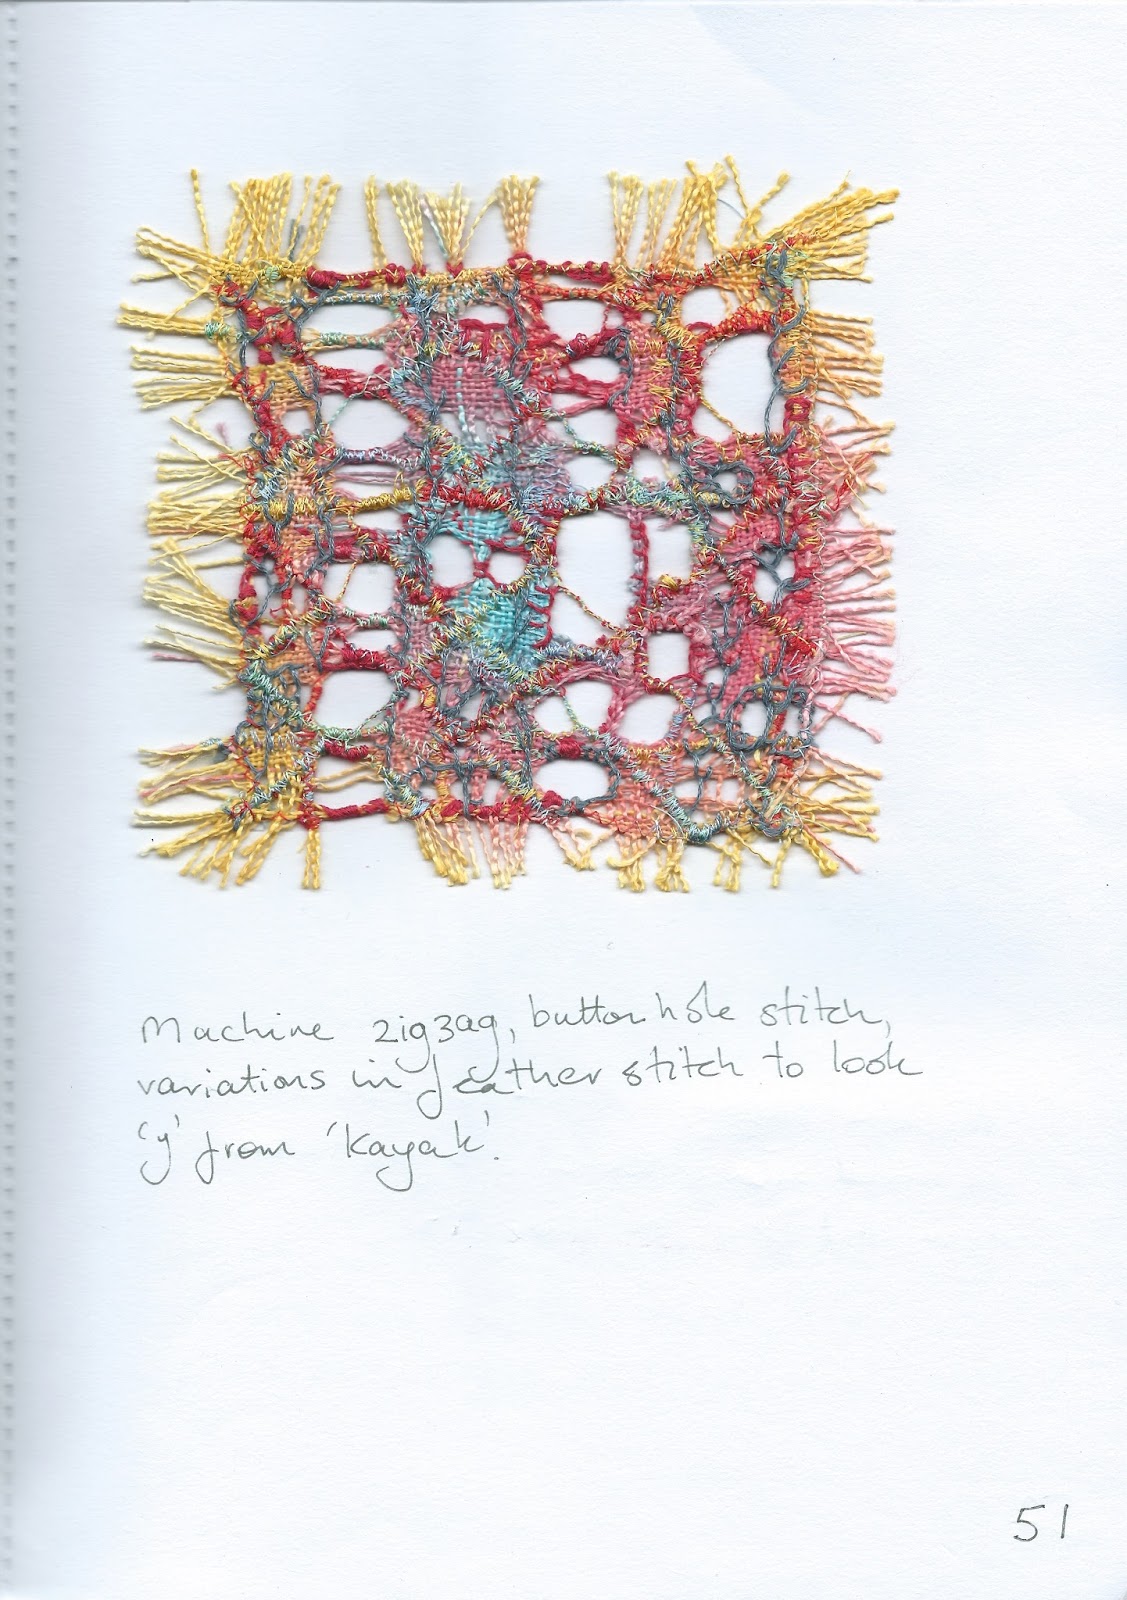 Machine zigzag, buttonhole stitch,
variations in feather stitch to look
'y' from 'kayak'.
51